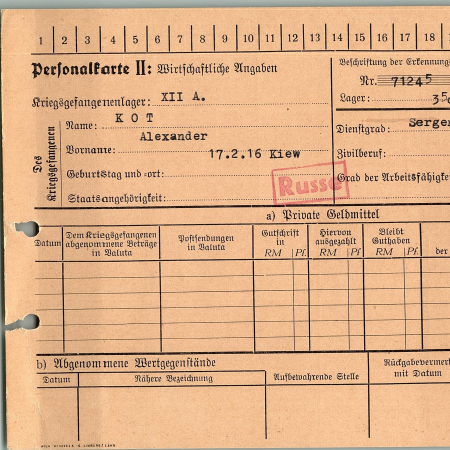 1 2 3 4 5 6 7 8 9 10 11 12 13 14 15 16 17 18
Personalkarte II: Wirtschaftliche Angaben
Beschriftung der Erkennung
Nr. 71245
Kriegsgefangenenlager: XII A.
Lager:
Des Kriegsgefangenen
Name: KOT
Alexander
Vorname:
17.2.16 Kiew
Geburtstag und -ort:
Staatsangehörigkeit:
Russe
Dienstgrad: Serge
Zivilberuf:
Grad der Arbeitsfähigke
a) Private Geldmittel
Datum
Dem Kriegsgefangenen abgenommene Beträge in Valuta
Postsendungen in Valuta
Gutschrift in
RM Pf.
Hiervon ausgezahlt
RM Pf
Bleibt Guthaben
RM Pf.
der
b) Abgenommene Wertgegenstände
Datum
Nähere Bezeichnung
Aufbewahrende Stelle
Rückgabevermer
mit Datum